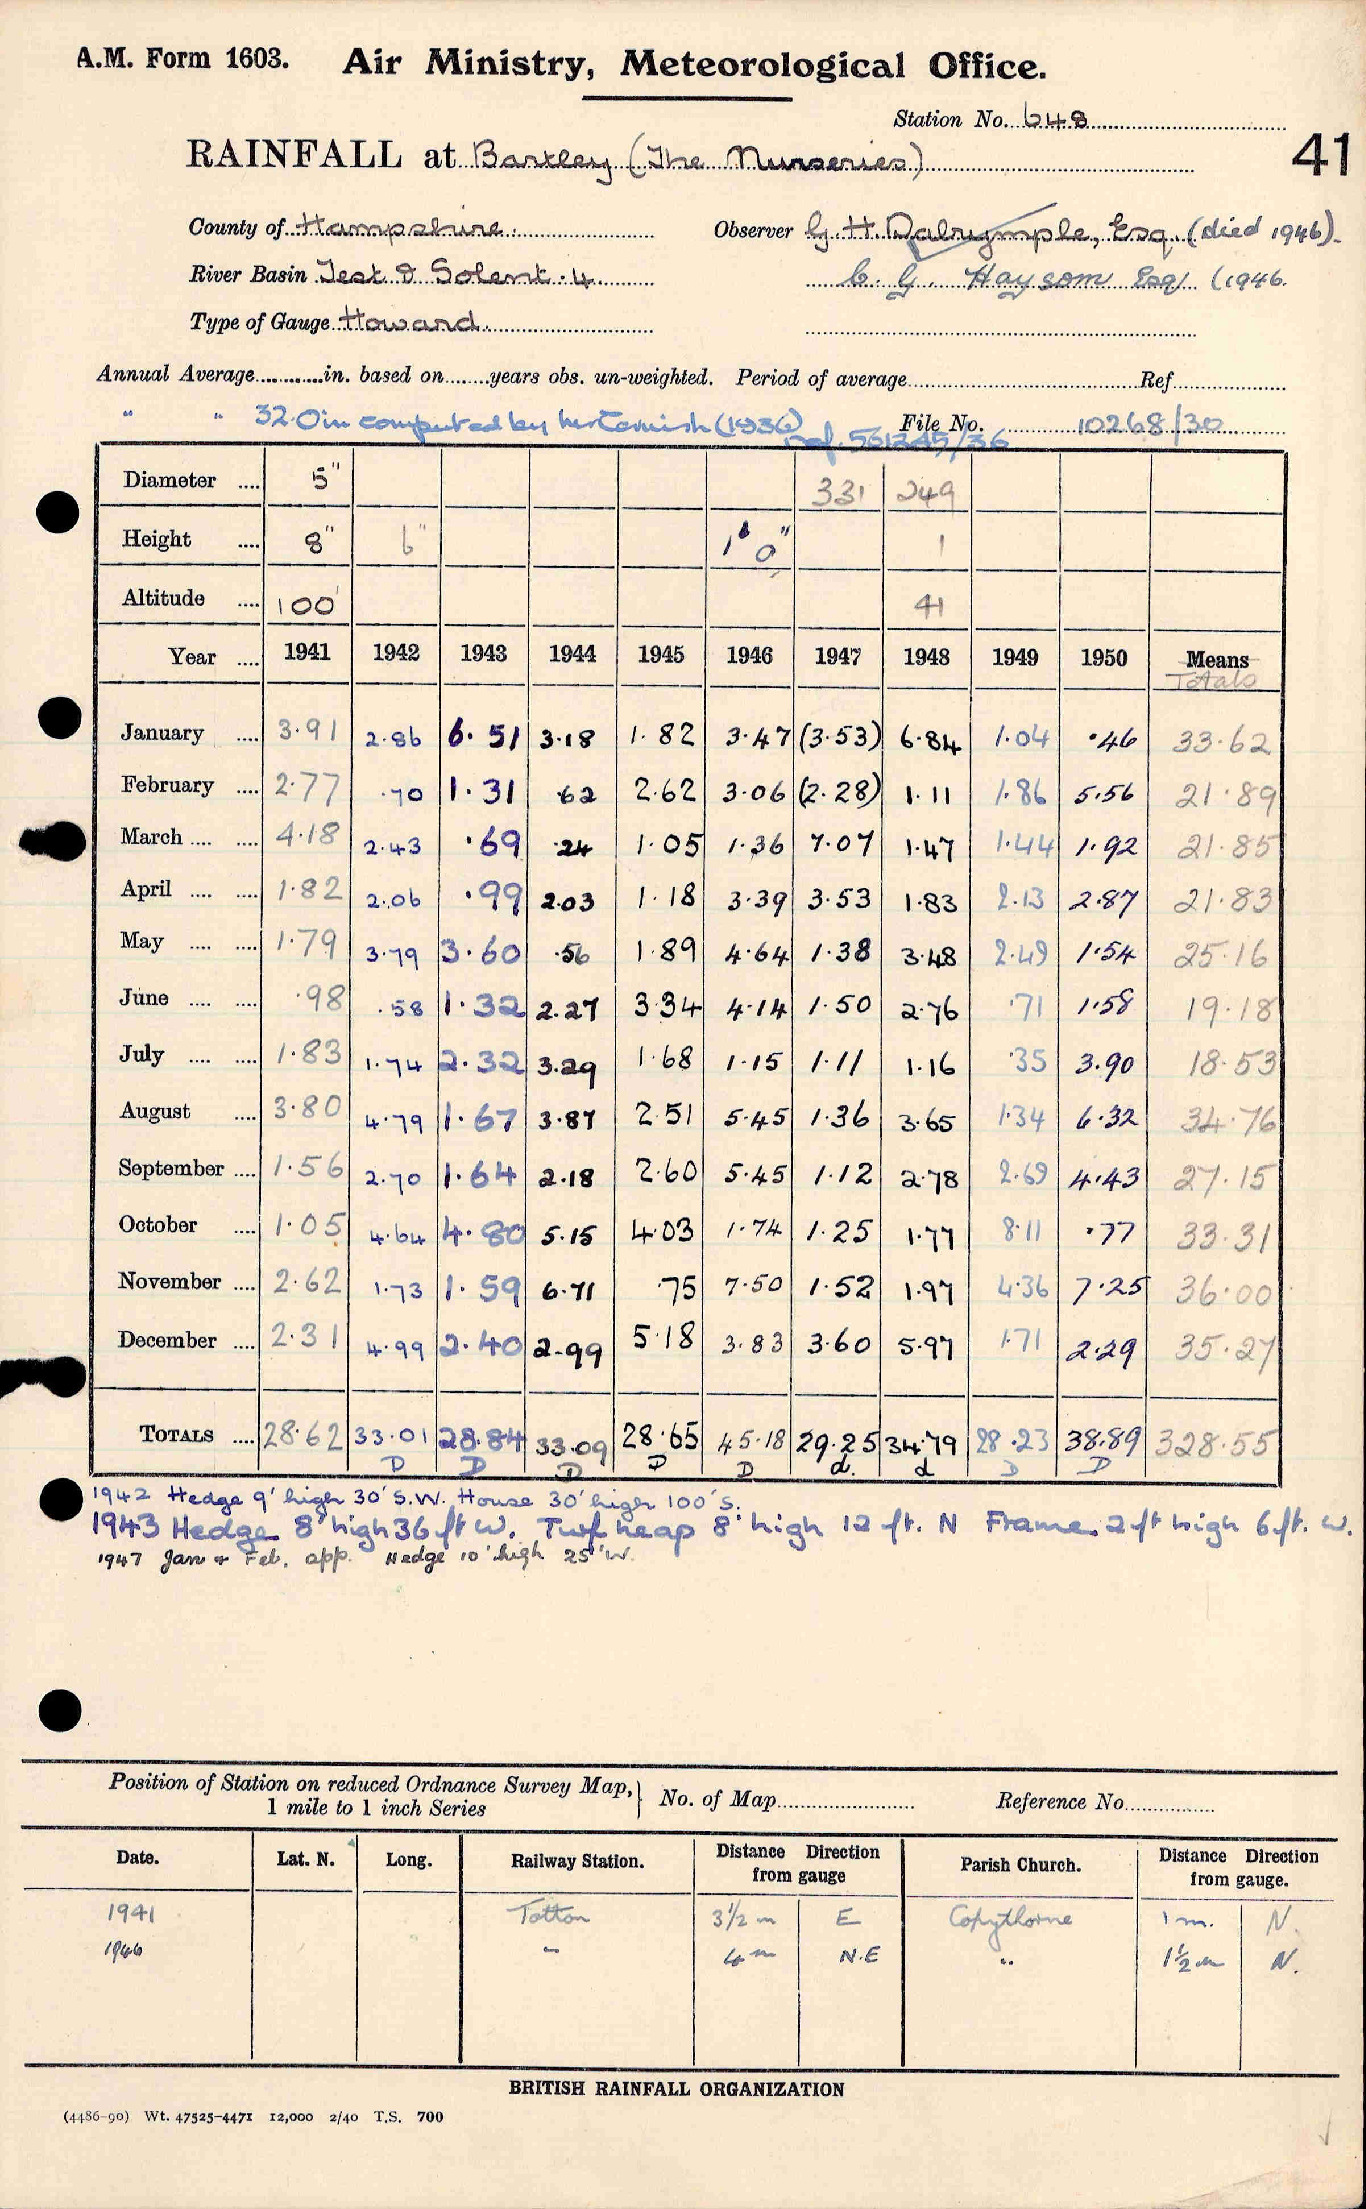 A.M. Form 1603. Air Ministry, Meteorological Office.
Station No. 648
RAINFALL at Bartley (The Nurseries) 41
County of Hampshire. Observer G. H. Dalrymple, Esq. (died 1946).
River Basin Test & Solent. 4. C. G. Haysom Esq (1946.
Type of Gauge Howard.
Annual Average............in. based on........years obs. un-weighted. Period of average.......... Ref..........
" " 32.0 in computed by (1936) File No. 10268/30
ref. 561245/36
Diameter .... 5" 331 249
Height .... 8" 6" 1' 0" 1
Altitude .... 100' 41
Year .... 1941 1942 1943 1944 1945 1946 1947 1948 1949 1950 Means
Totals
January .... 3.91 2.86 6.51 3.18 1.82 3.47 (3.53) 6.84 1.04 .46 33.62
February .... 2.77 .70 1.31 .62 2.62 3.06 (2.28) 1.11 1.86 5.56 21.89
March .... .... 4.18 2.43 .69 .24 1.05 1.36 7.07 1.47 1.44 1.92 21.85
April .... .... 1.82 2.06 .99 2.03 1.18 3.39 3.53 1.83 2.13 2.87 21.83
May .... .... 1.79 3.79 3.60 .56 1.89 4.64 1.38 3.48 2.49 1.54 25.16
June .... .... .98 .58 1.32 2.27 3.34 4.14 1.50 2.76 .71 1.58 19.18
July .... .... 1.83 1.74 2.32 3.29 1.68 1.15 1.11 1.16 .35 3.90 18.53
August .... 3.80 4.79 1.67 3.87 2.51 5.45 1.36 3.65 1.34 6.32 34.76
September .... 1.56 2.70 1.64 2.18 2.60 5.45 1.12 2.78 2.69 4.43 27.15
October .... 1.05 4.64 4.80 5.15 4.03 1.74 1.25 1.77 8.11 .77 33.31
November .... 2.62 1.73 1.59 6.71 .75 7.50 1.52 1.97 4.36 7.25 36.00
December .... 2.31 4.99 2.40 2.99 5.18 3.83 3.60 5.97 1.71 2.29 35.27
TOTALS .... 28.62 33.01 28.84 33.09 28.65 45.18 29.25 34.79 28.23 38.89 328.55
D D D D D d. d D D
1942 Hedge 9' high 30' S.W. House 30' high 100' S.
1943 Hedge 8' high 36 ft W. Turf heap 8' high 12 ft. N Frame 2 ft high 6 ft. W.
1947 Jan & Feb. app. Hedge 10' high 25' W.
Position of Station on reduced Ordnance Survey Map, 1 mile to 1 inch Series } No. of Map.......... Reference No..........
Date. Lat. N. Long. Railway Station. Distance Direction from gauge Parish Church. Distance Direction from gauge.
1941 Totton 3½ m E Copythorne 1 m. N.
1946 " 4 m N.E " 1½ m N.
BRITISH RAINFALL ORGANIZATION
(4486-90) Wt. 47525-4471 12,000 2/40 T.S. 700